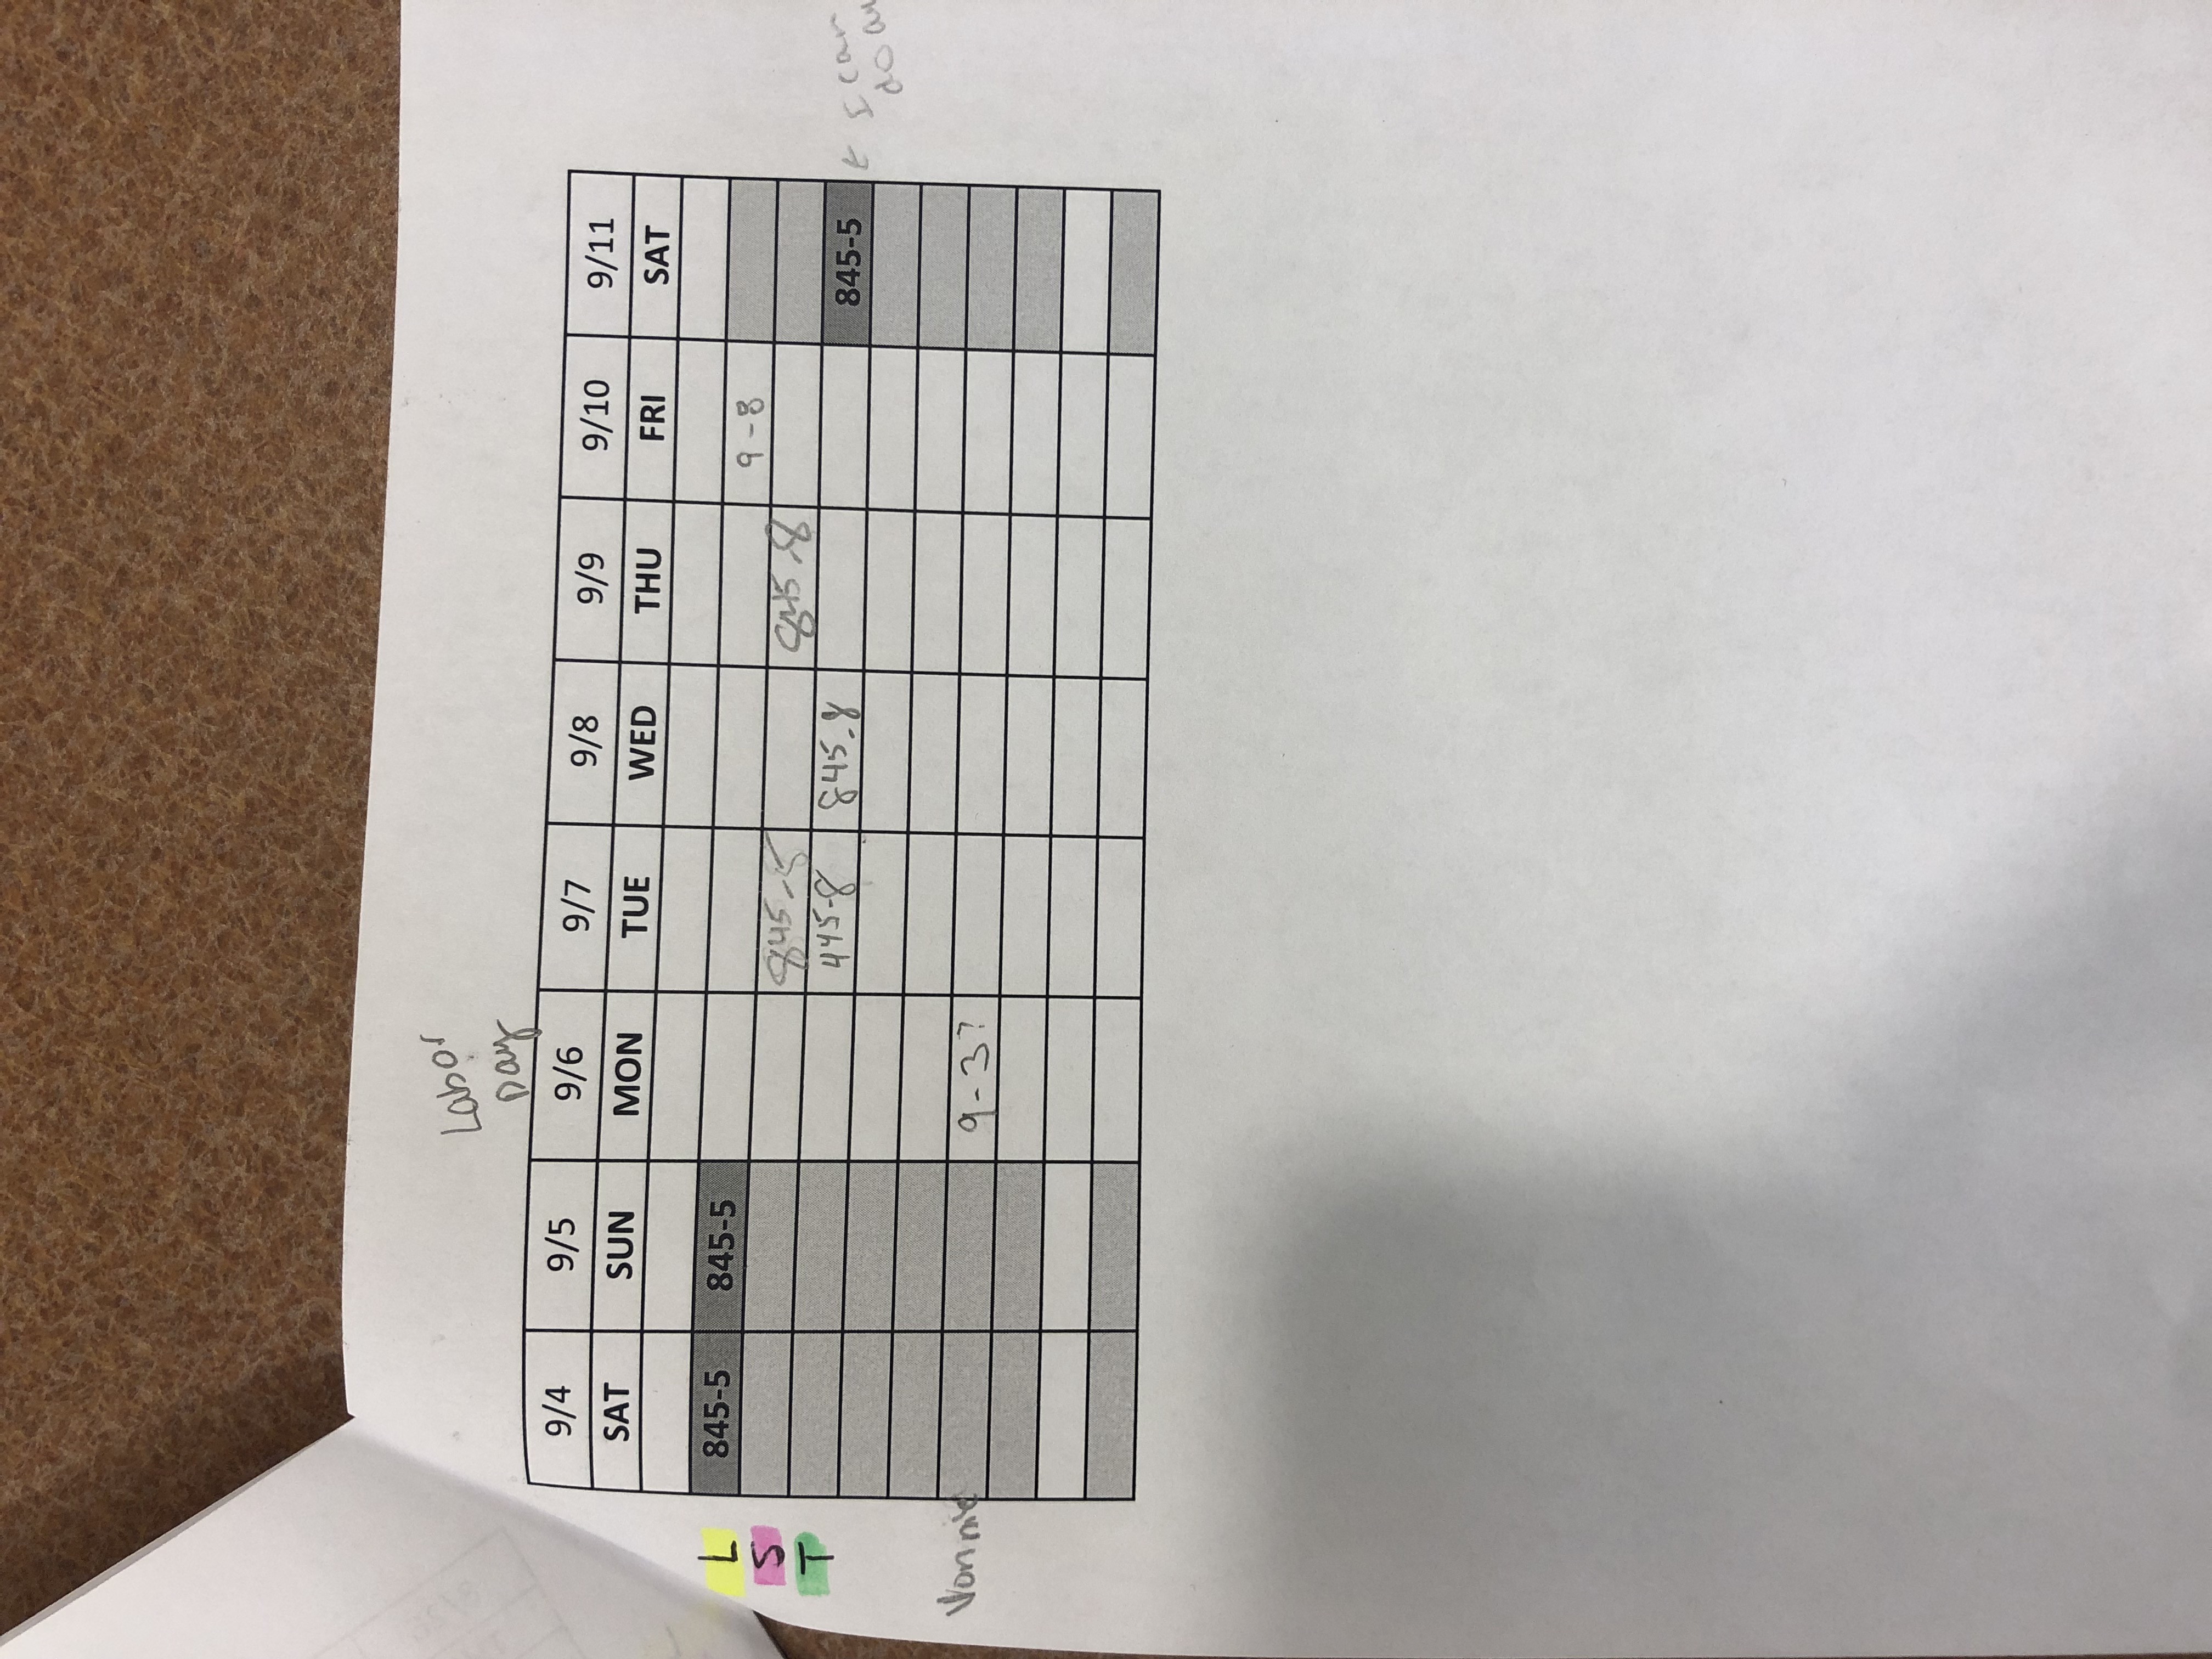 Labor
Day
9/4 9/5 9/6 9/7 9/8 9/9 9/10 9/11
SAT SUN MON TUE WED THU FRI SAT
L 845-5 845-5 9-8
S 845-5 845-8
T 445-8 845-8 845-5 I can
do
Vonnie 9-3?